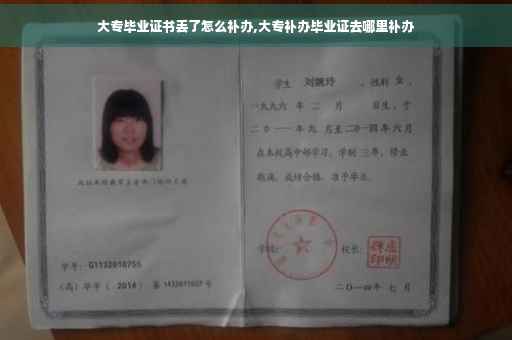 大专毕业证书丢了怎么补办,大专补办毕业证去哪里补办
学生 刘婉玲 ，性别 女 ，
一九九六 年 二 月 日生，于
二〇一一 年 九 月至 二〇一四 年 六 月
在本校高中部学习，学制 三年，修业
期满，成绩合格，准予毕业。
学校： 校长：
二〇一四年 七 月
学号： G1132010755
（高）毕字（ 2014 ）第 1432011027 号